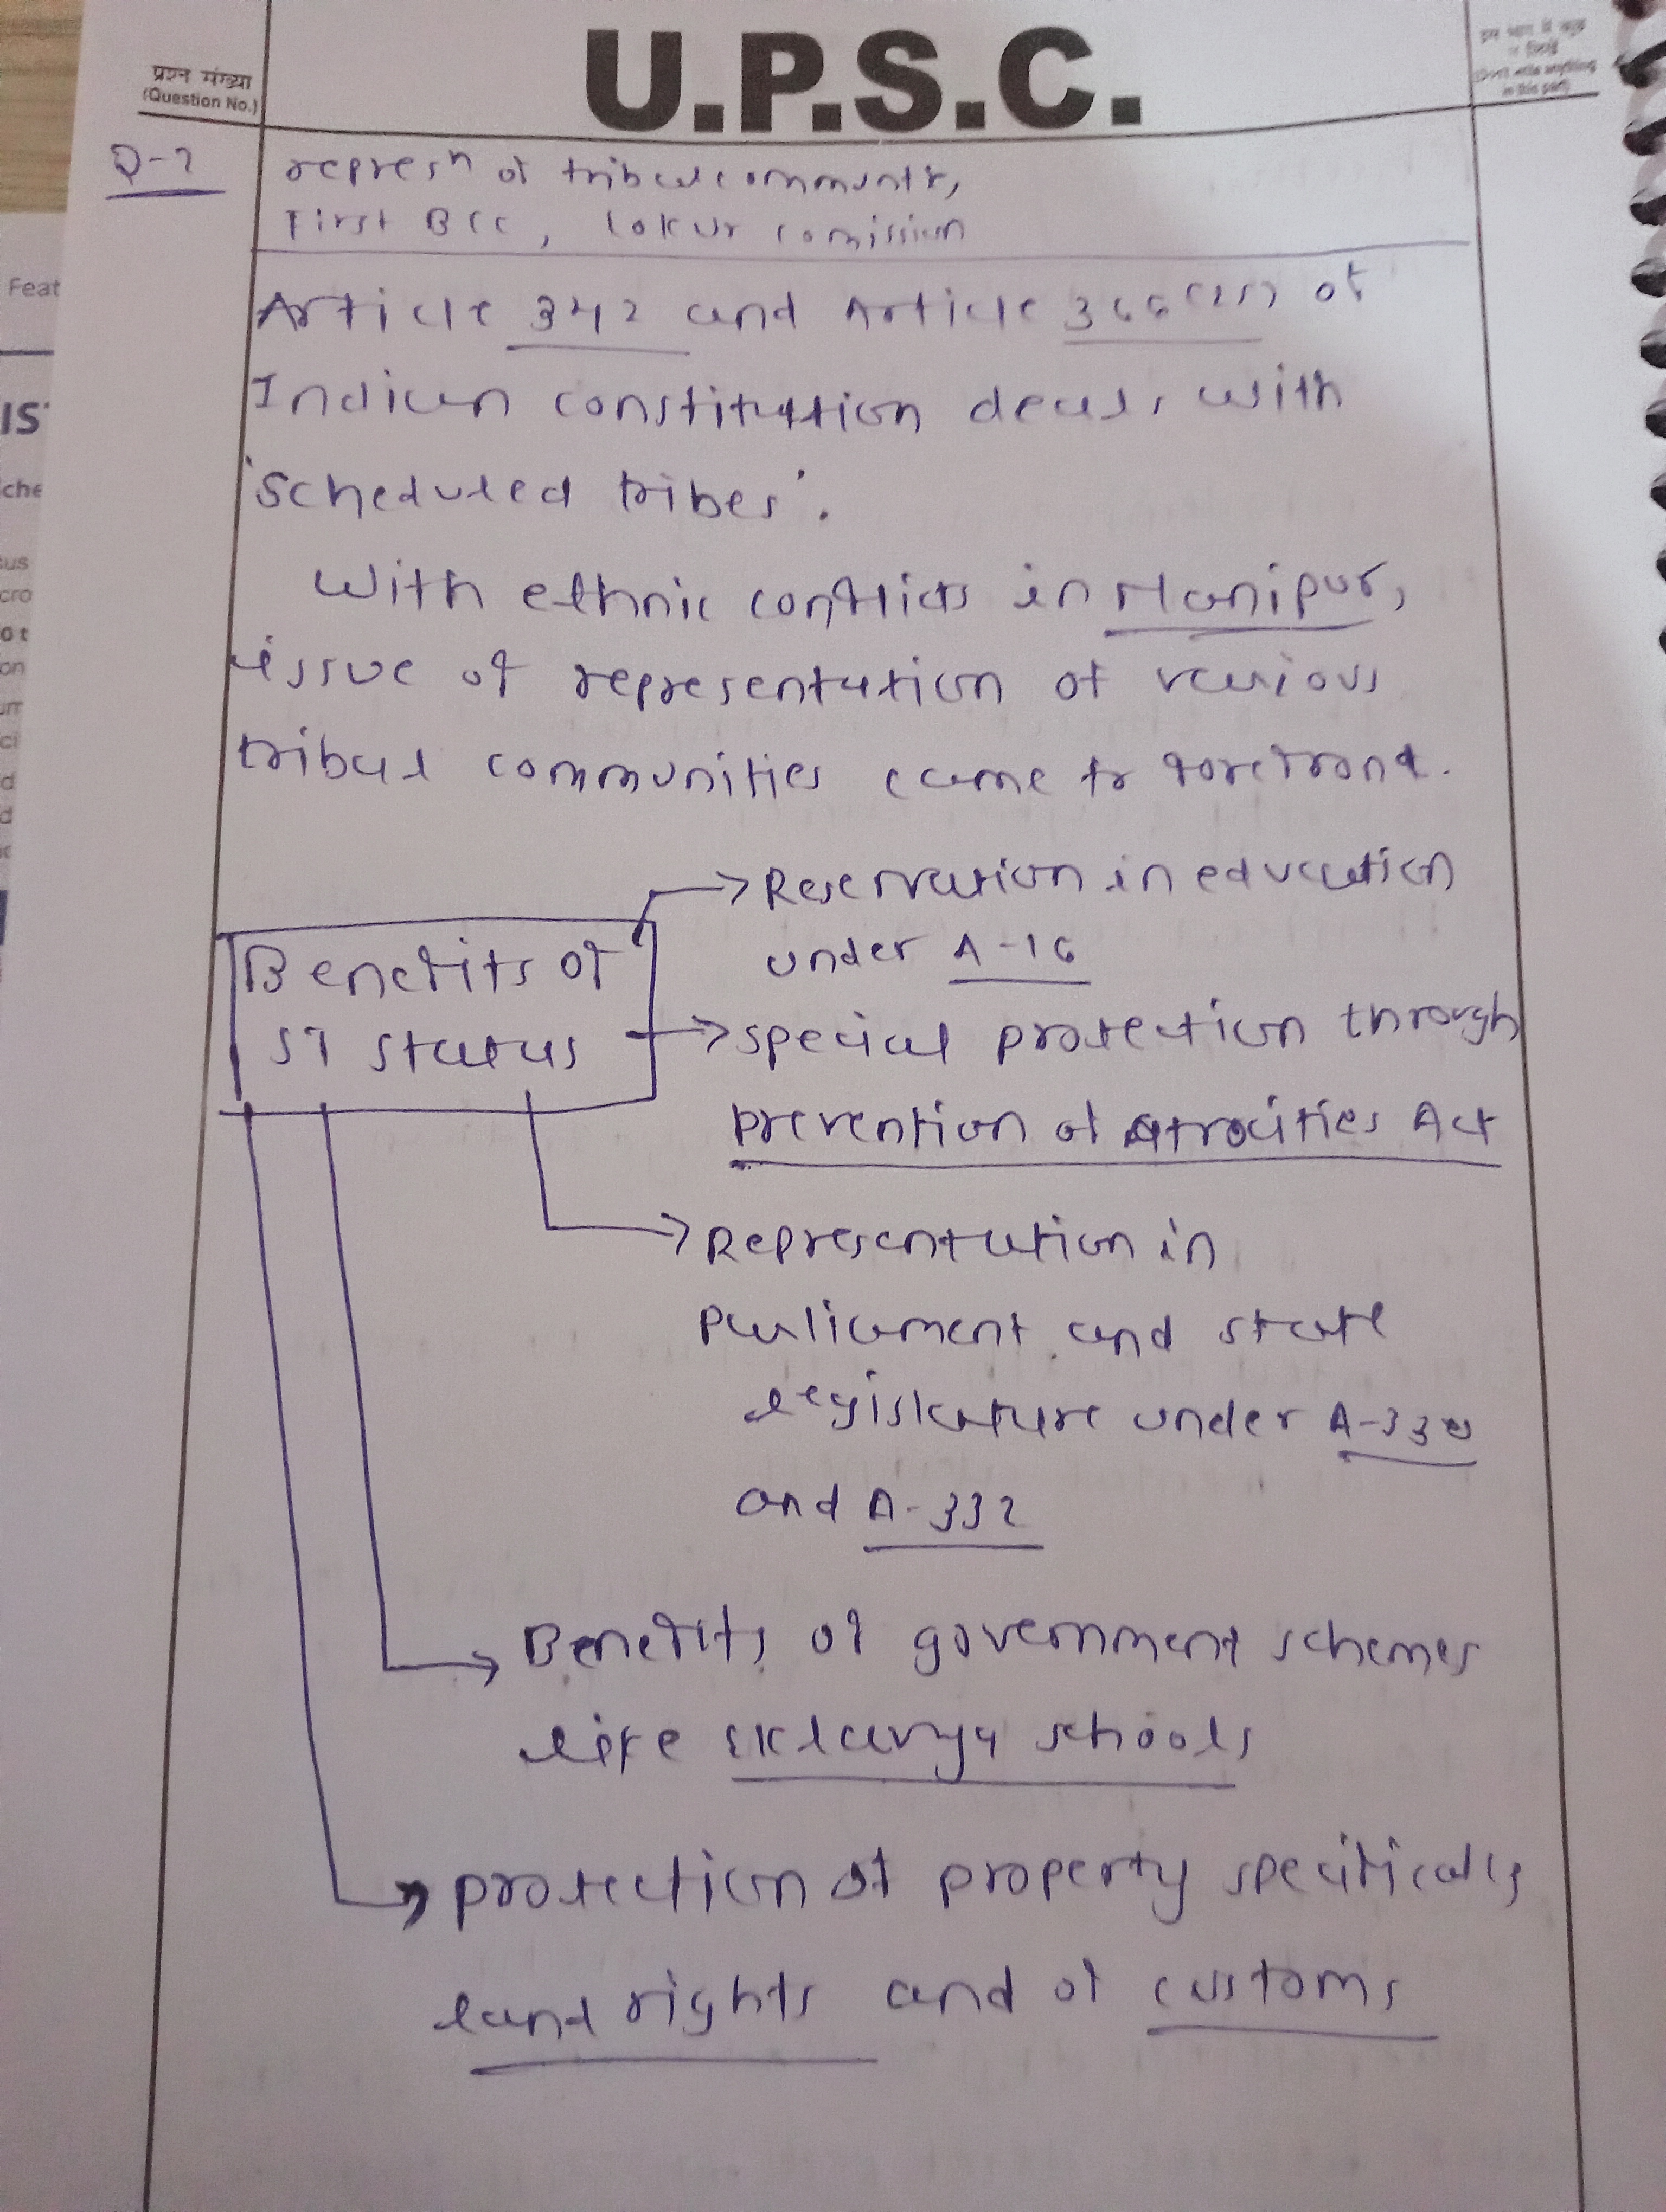 U.P.S.C.
प्रश्न संख्या
(Question No.)
(Don't write anything
in this part)
Q-2
represn of tribal community,
First BCC, Lokur comission
Article 342 and Article 366(25) of
Indian constitution deals with
'Scheduled tribes'.
With ethnic conflicts in Manipur,
issue of representation of various
tribal communities came to forefront.
Benefits of
ST status
→ Reservation in education
under A-16
→ special protection through
prevention of Atrocities Act
→ Representation in
Parliament and state
legislature under A-330
and A-332
→ Benefits of government schemes
like Eklavya schools
→ protection of property specifically
land rights and of customs
Feat
IS
che
sus
cro
ot
on
um
ci
d
d